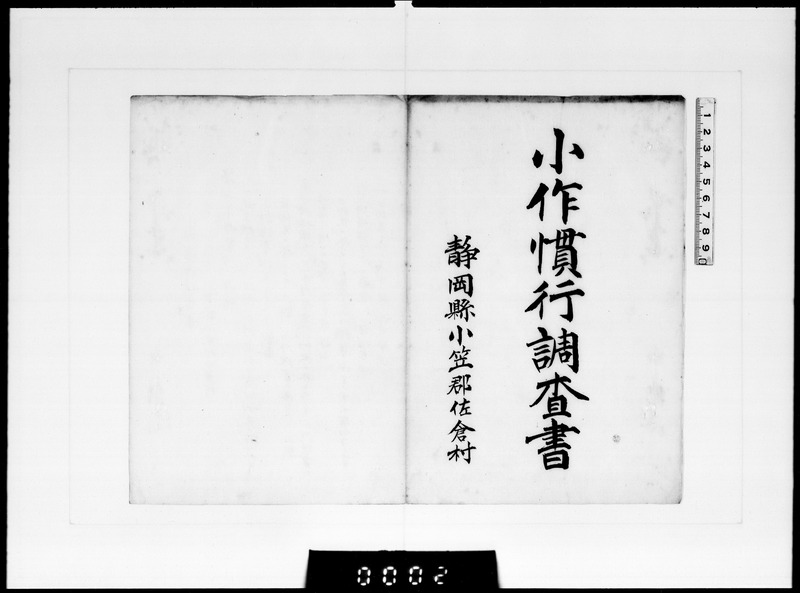 小作慣行調査書
静岡縣小笠郡佐倉村
1 2 3 4 5 6 7 8 9
0002